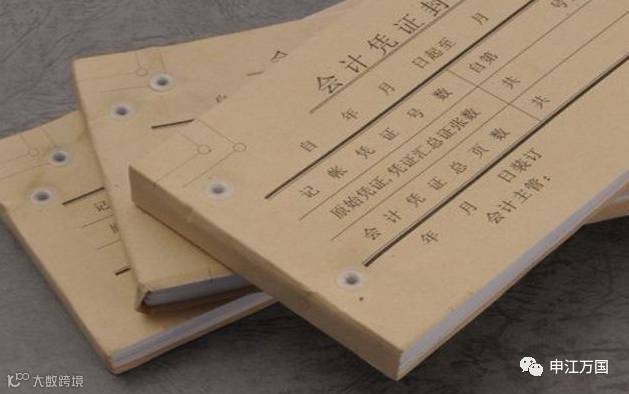 会计凭证封
自 年 月 日起至 月
记帐凭证号数 自第 号
原始凭证,凭证汇总证张数 共
会计凭证总页数 共
年 月 日装订
会计主管:
记
原
会
申江万国
大数跨境